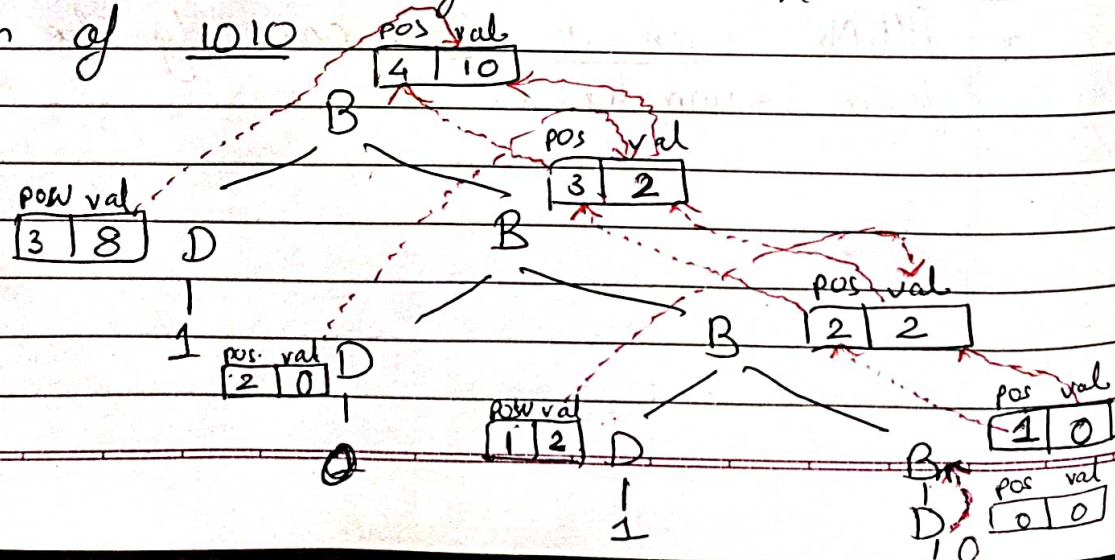 of 1010
pos val
4 10
B
pos val
3 2
posw val
3 8
D
B
pos val
2 2
1
pos. val
2 0
D
B
pos val
1 0
posw val
1 2
0
D
B
pos val
0 0
1
D
0